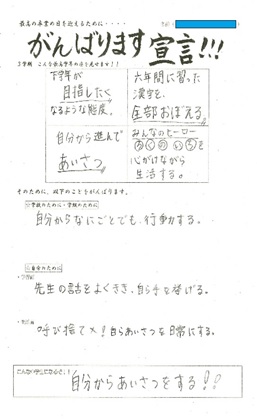 最高の卒業の日を迎えるために・・・・
がんばります宣言!!!
3学期 こんな最高学年の姿を見せます!!
下学年が
目指したく
なるような態度。
自分から進んで
あいさつ
六年間に習った
漢字を、
全部おぼえる
みんなのヒーロー
ろくのいちを
心がけながら
生活する。
そのために、以下のことをがんばります。
自分からなにごとでも行動する。
先生の話をよくきき、自ら手を挙げる。
呼び捨て×!自らあいさつを日常にする。
自分からあいさつをする!!